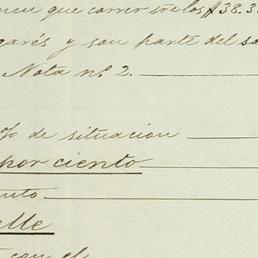 que correr sre los $38.3
garés y son parte del sa
Nota nº 2.
% de situacion
por ciento
elle